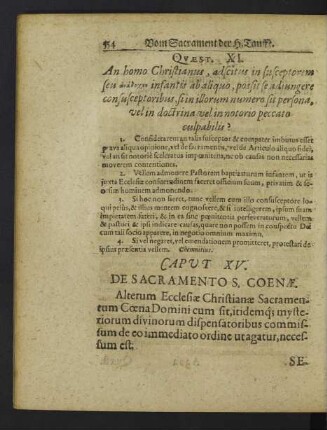 554 Vom Sacrament der H. Tauff.
QVÆST. XI.
An homo Christianus, adscitus in susceptorem
seu infantis ab aliquo, possit se adiungere
consusceptoribus, si in illorum numero sit persona,
vel in doctrina vel in notorio peccato
culpabilis?
1. Considerarem an talis susceptor & compater imbutus esset
prava aliqua opinione, vel de sacramentis, vel de Articulo aliquo fidei,
vel an sit notoriè sceleratus impœnitens, ne ob causas non necessarias
moverem contentiones.
2. Vellem admonere Pastorem baptizaturum infantem, ut is
juxta Ecclesiæ consuetudinem faceret officium suum, privatim & seorsim
hominem admonendo.
3. Si hoc non faceret, tunc vellem cum illo consusceptore loqui
prius, & illius mentem cognoscere, & si intelligerem, ipsum suam
impietatem tueri, & in ea sine pœnitentia perseveraturum, vellem
& pastori & ipsi indicare causas, quare non possem in conspectu Dei
cum tali socio apparere, in negotio omnium maximo.
4. Si vel negaret, vel emendationem promitteret, protestari de
ipsius præsentia vellem. Chemnitius.
CAPUT XV.
DE SACRAMENTO S. COENÆ.
Alterum Ecclesiæ Christianæ Sacramentum
Cœna Domini cum sit, itidemque mysteriorum
divinorum dispensatoribus commissum
de eo immediato ordine ut agatur, necessum
est.
SE-